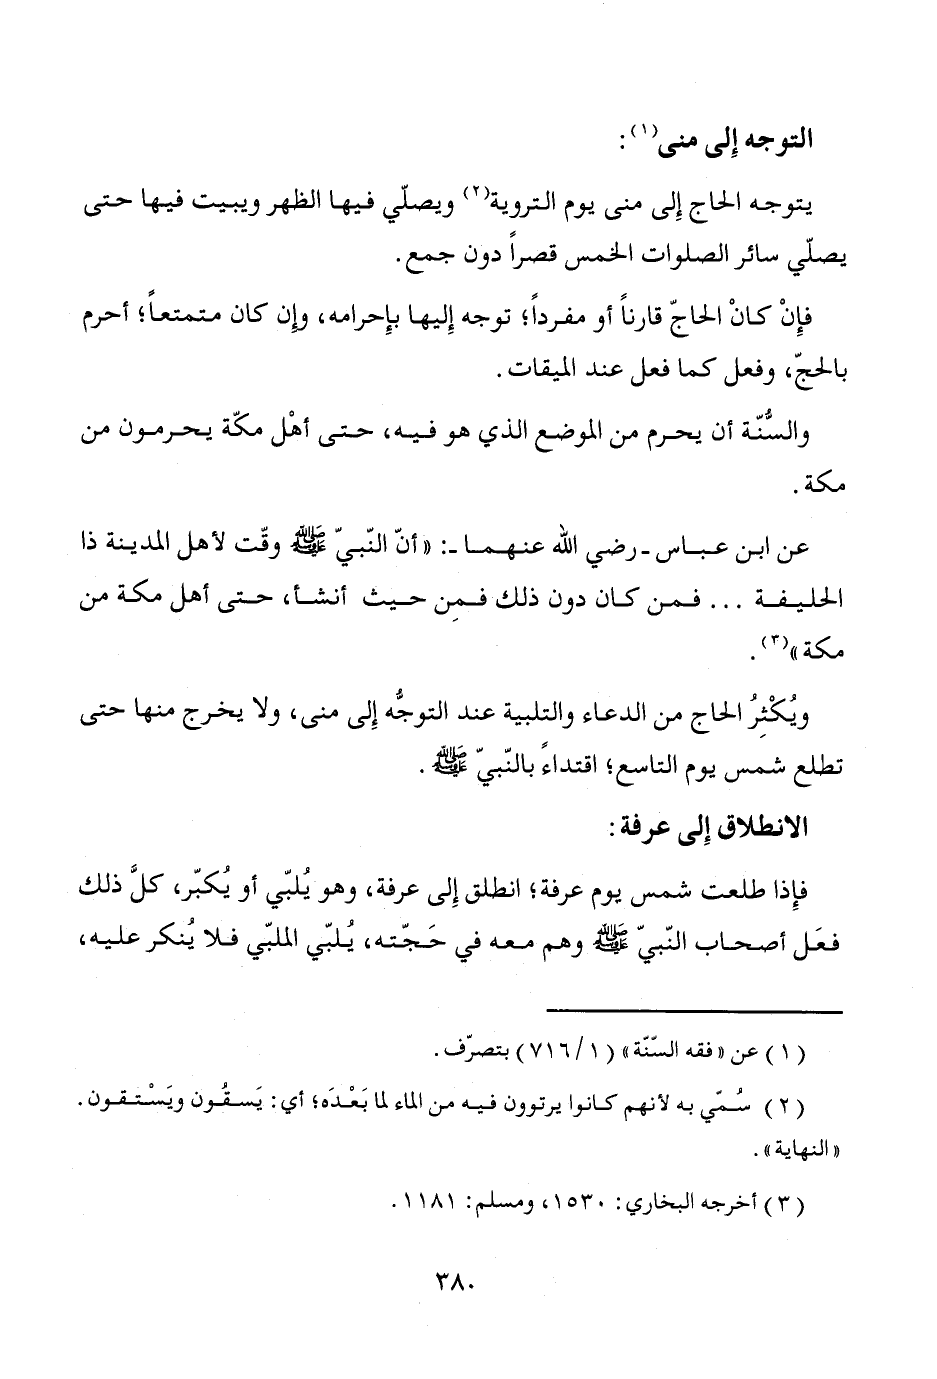 التوجه إلى منى(١):
يتوجه الحاج إلى منى يوم التروية(٢) ويصلّي فيها الظهر ويبيت فيها حتى
يصلّي سائر الصلوات الخمس قصراً دون جمع.
فإنْ كانْ الحاجّ قارناً أو مفرداً؛ توجه إليها بإحرامه، وإن كان متمتعاً؛ أحرم
بالحجّ، وفعل كما فعل عند الميقات.
والسُّنّة أن يحرم من الموضع الذي هو فيه، حتى أهْل مكّة يحرمون من
مكة.
عن ابن عباس ـ رضي الله عنهما ـ: «أنّ النّبيّ ﷺ وقّت لأهل المدينة ذا
الحليفة ... فمن كان دون ذلك فمِن حيث أنشأ، حتى أهل مكة من
مكة»(٣).
ويُكْثِرُ الحاج من الدعاء والتلبية عند التوجُّه إلى منى، ولا يخرج منها حتى
تطلع شمس يوم التاسع؛ اقتداءً بالنّبيّ ﷺ.
الانطلاق إلى عرفة:
فإذا طلعت شمس يوم عرفة؛ انطلق إلى عرفة، وهو يُلبّي أو يُكبّر، كلَّ ذلك
فعَل أصحاب النّبيّ ﷺ وهم معه في حَجّته، يُلبّي الملبّي فلا يُنكر عليه،
(١) عن «فقه السّنّة» (١/٧١٦) بتصرّف.
(٢) سُمّي به لأنهم كانوا يرتوون فيه من الماء لما بَعْدَه؛ أي: يَسقُون ويَسْتقون.
«النهاية».
(٣) أخرجه البخاري: ١٥٣٠، ومسلم: ١١٨١.
٣٨٠